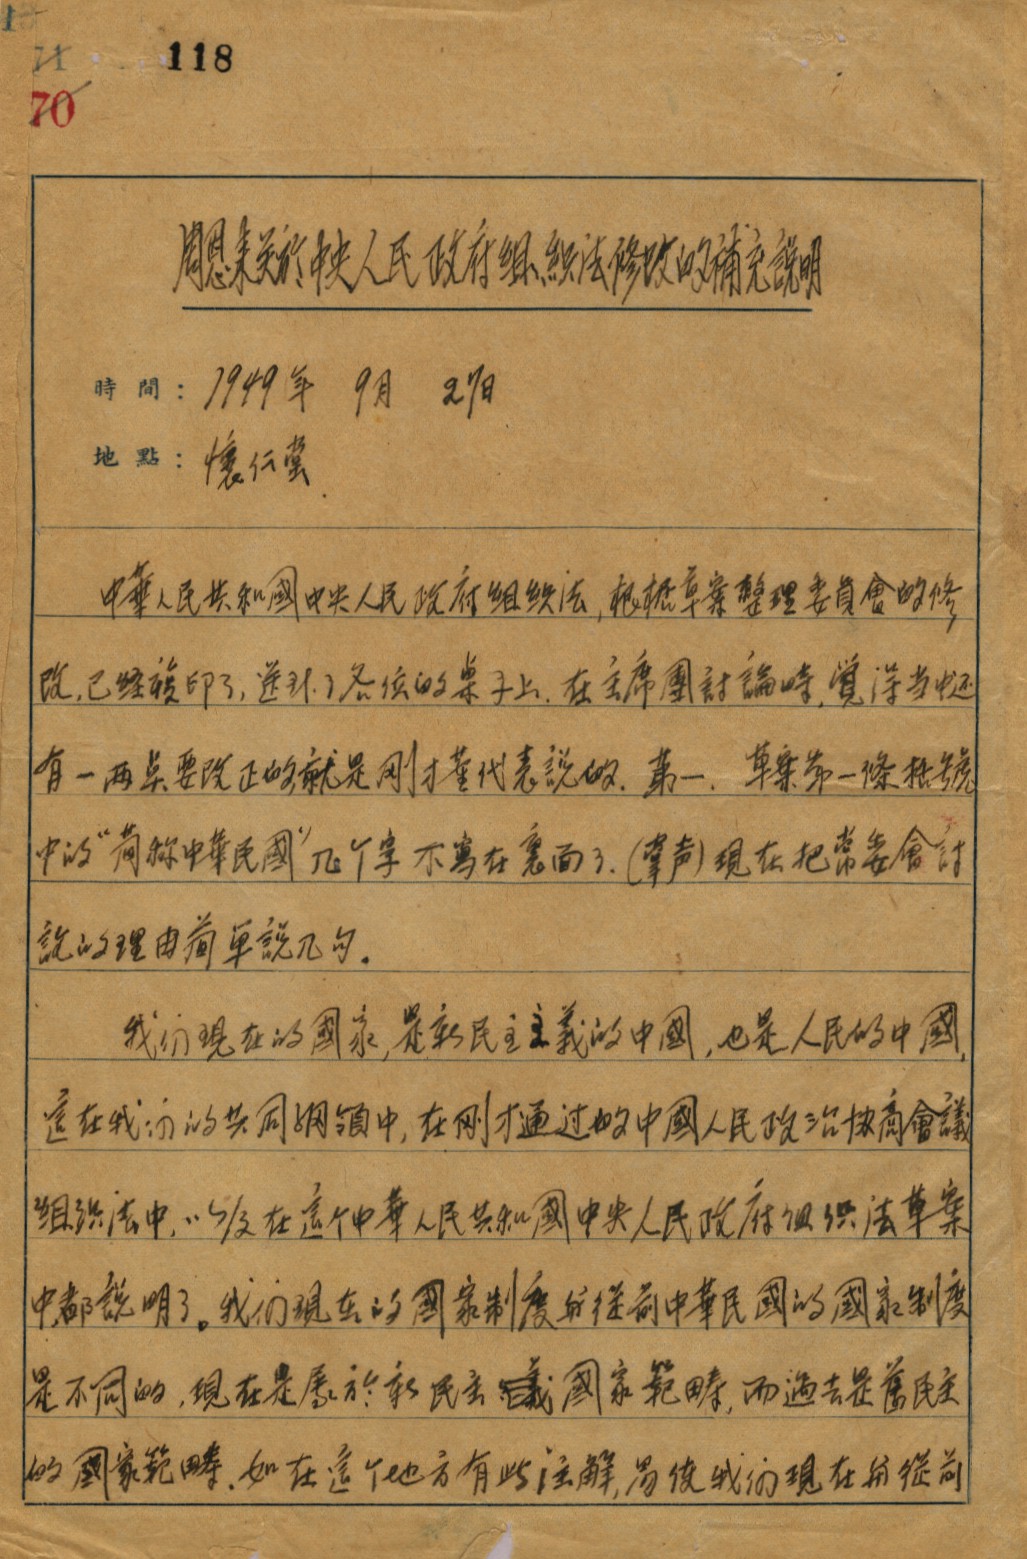 118
70
周恩来关於中央人民政府组织法修改的補充說明
時間：1949年 9月 27日
地點：懷仁堂
中華人民共和國中央人民政府组织法，根据草案整理委員會的修
改，已经複印了，送到了各位的桌子上．在主席團討論時，覺得当中还
有一两点要改正的就是刚才董代表說的．第一．草案第一條括號
中的“简称中華民國”几个字不寫在裏面了．（掌声）現在把常委會討
說的理由简单說几句。
我们現在的國家，是新民主主義的中國，也是人民的中國，
這在我们的共同綱領中，在刚才通过的中國人民政治协商會議
组织法中，以及在這个中華人民共和國中央人民政府组织法草案
中都說明了。我们現在的國家制度與從前中華民國的國家制度
是不同的，現在是屬於新民主義國家範疇，而過去是舊民主
的國家範疇．如在這个地方有此注解，易使我们現在與從前